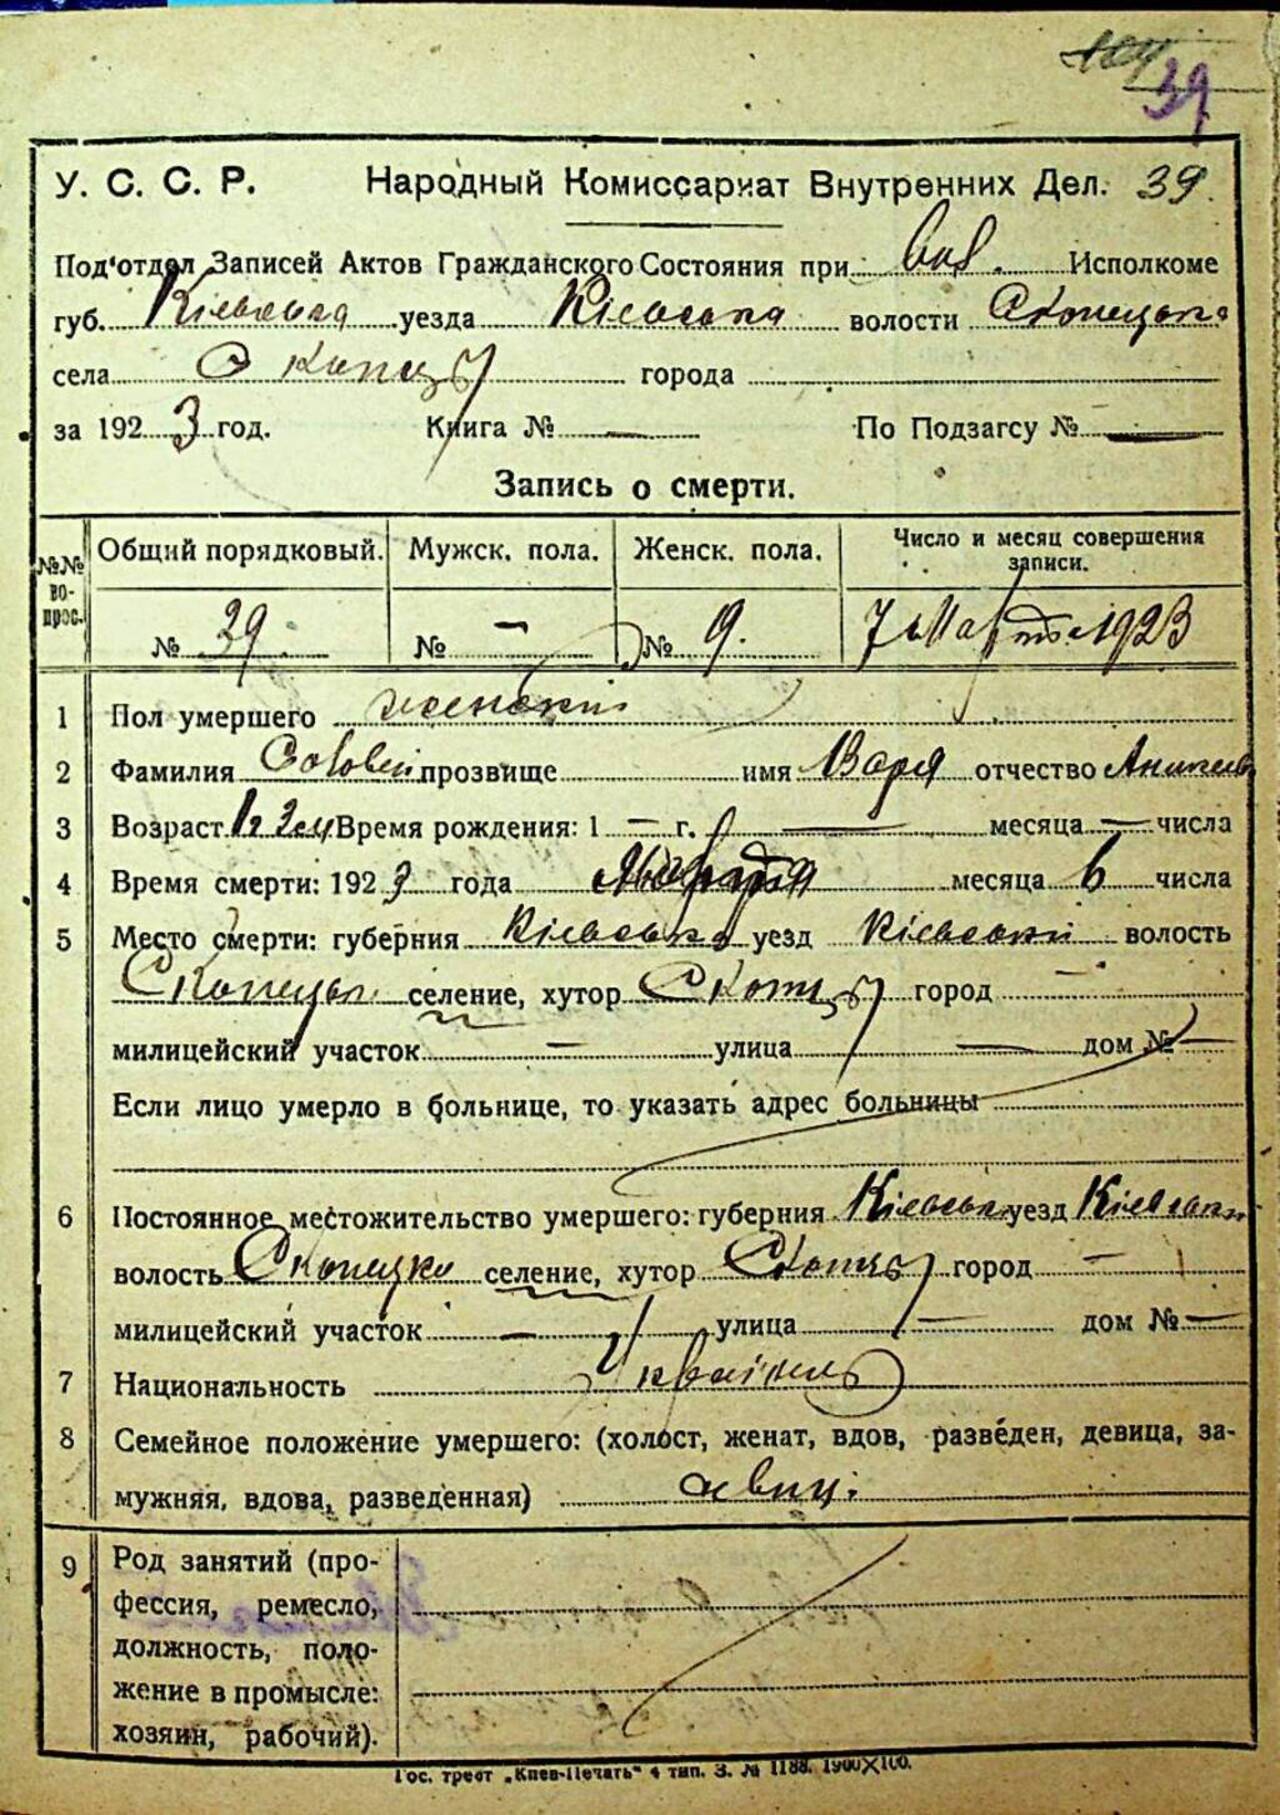 39
У. С. С. Р. Народный Комиссариат Внутренних Дел. 39.
Под'отдел Записей Актов Гражданского Состояния при Исполкоме
губ. Київська уезда Київська волости Скопецька
села Скопці города
за 1923 год. Книга № — По Подзагсу № —
Запись о смерти.
№№ вопрос. Общий порядковый. Мужск. пола. Женск. пола. Число и месяц совершения записи.
№ 39. № — № 9. 7 Марта 1923
1 Пол умершего женский
2 Фамилия Соловей прозвище имя Варя отчество
3 Возраст Время рождения: 1 — г. — месяца — числа
4 Время смерти: 1923 года Марта месяца 6 числа
5 Место смерти: губерния Київська уезд Київський волость
Скопецька селение, хутор город —
милицейский участок — улица — дом № —
Если лицо умерло в больнице, то указать адрес больницы
6 Постоянное местожительство умершего: губерния Київська уезд
волость селение, хутор город —
милицейский участок — улица — дом № —
7 Национальность
8 Семейное положение умершего: (холост, женат, вдов, разведен, девица, за-
мужняя, вдова, разведенная)
9 Род занятий (про-
фессия, ремесло,
должность, поло-
жение в промысле:
хозяин, рабочий).
Гос. трест „Киев-Печать“ 4 тип. З. № 1188. 1900×100.